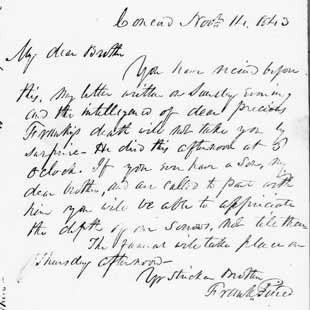 Concord Nov. 14. 1843
My dear Brother
You have received before
this, my letter written on Sunday evening
and the intelligence of dear precious
Franky's death will not take you by
surprise - He died this afternoon at
o'clock. If you ever have a son, my
dear brother, and are called to part with
him you will be able to appreciate
the depth of our sorrows, not till then
The funeral will take place on
Thursday afternoon -
Yr stricken Brother
Frank Pierce